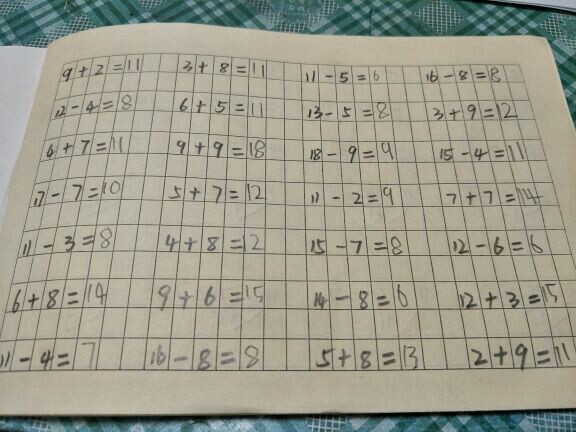 9+2=11 3+8=11 11-5=6 16-8=8
12-4=8 6+5=11 13-5=8 3+9=12
4+7=11 9+9=18 18-9=9 15-4=11
17-7=10 5+7=12 11-2=9 7+7=14
11-3=8 4+8=12 15-7=8 12-6=6
6+8=14 9+6=15 14-8=6 12+3=15
11-4=7 16-8=8 5+8=13 2+9=11